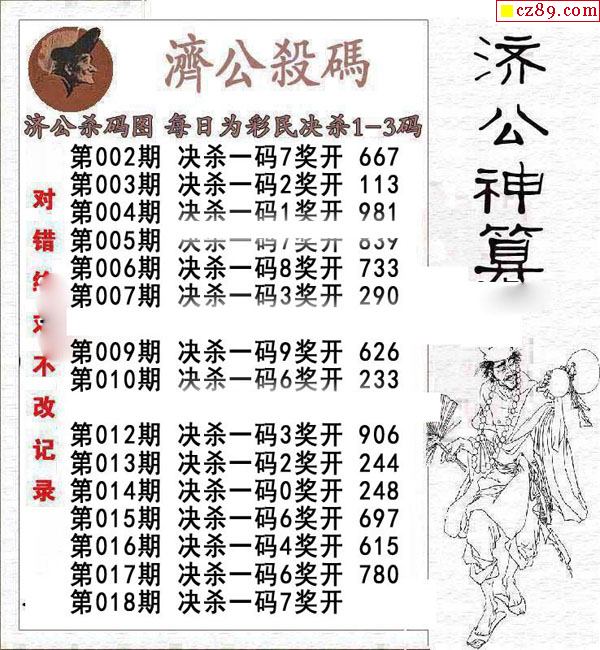 cz89.com
濟公殺碼
济公杀码图 每日为彩民决杀1-3码
第002期 决杀一码7奖开 667
第003期 决杀一码2奖开 113
第004期 决杀一码1奖开 981
第005期 决杀一码7奖开 839
第006期 决杀一码8奖开 733
第007期 决杀一码3奖开 290
第009期 决杀一码9奖开 626
第010期 决杀一码6奖开 233
第012期 决杀一码3奖开 906
第013期 决杀一码2奖开 244
第014期 决杀一码0奖开 248
第015期 决杀一码6奖开 697
第016期 决杀一码4奖开 615
第017期 决杀一码6奖开 780
第018期 决杀一码7奖开
对错
不改记录
济公神算